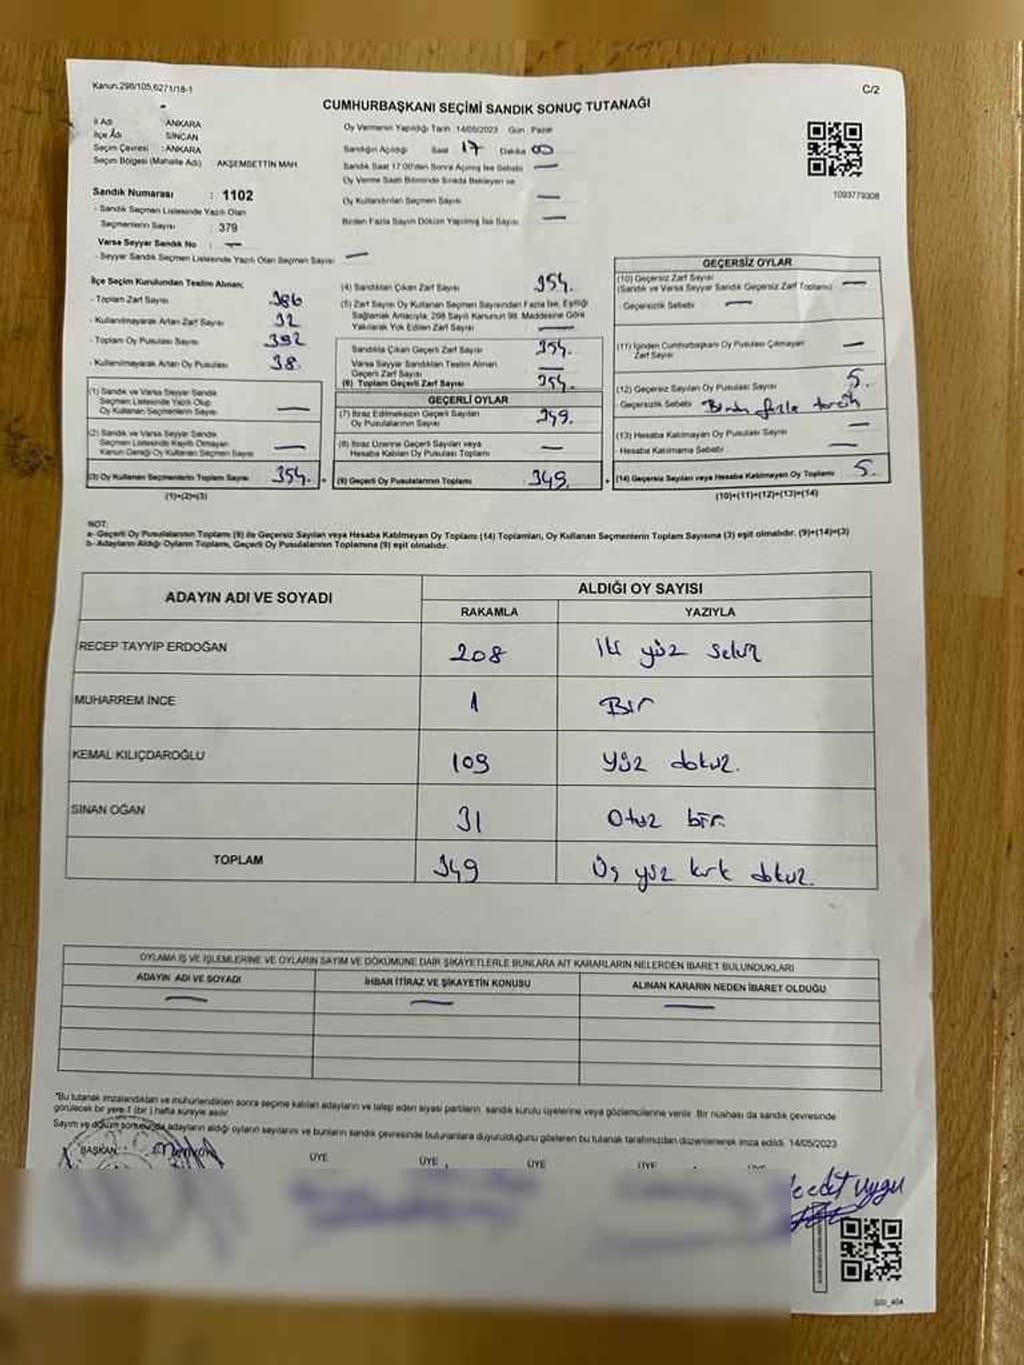 Kanun:298/105,6271/18-1
C/2
CUMHURBAŞKANI SEÇİMİ SANDIK SONUÇ TUTANAĞI
İl Adı ANKARA
İlçe Adı SİNCAN
Seçim Çevresi : ANKARA
Seçim Bölgesi (Mahalle Adı) AKŞEMSETTİN MAH.
Sandık Numarası : 1102
- Sandık Seçmen Listesinde Yazılı Olan
Seçmenlerin Sayısı : 379
Varsa Seyyar Sandık No : —
- Seyyar Sandık Seçmen Listesinde Yazılı Olan Seçmen Sayısı —
Oy Vermenin Yapıldığı Tarih 14/05/2023 Gün Pazar
Sandığın Açıldığı Saat 17 Dakika 00
Sandık Saat 17:00'den Sonra Açılmış İse Sebebi —
Oy Verme Saati Bitiminde Sırada Bekleyen ve
Oy Kullandırılan Seçmen Sayısı —
Birden Fazla Sayım Döküm Yapılmış İse Sayısı —
1093779308
İlçe Seçim Kurulundan Teslim Alınan;
- Toplam Zarf Sayısı 386
- Kullanılmayarak Artan Zarf Sayısı 32
- Toplam Oy Pusulası Sayısı 392
- Kullanılmayarak Artan Oy Pusulası 38.
(1) Sandık ve Varsa Seyyar Sandık
Seçmen Listesinde Yazılı Olup
Oy Kullanan Seçmenlerin Sayısı —
(2) Sandık ve Varsa Seyyar Sandık
Seçmen Listesinde Kayıtlı Olmayan
Kanun Gereği Oy Kullanan Seçmen Sayısı —
(3) Oy Kullanan Seçmenlerin Toplam Sayısı 354.
(1)+(2)=(3)
(4) Sandıktan Çıkan Zarf Sayısı 354.
(5) Zarf Sayısı Oy Kullanan Seçmen Sayısından Fazla İse, Eşitliği
Sağlamak Amacıyla, 298 Sayılı Kanunun 98. Maddesine Göre
Yakılarak Yok Edilen Zarf Sayısı —
Sandıkta Çıkan Geçerli Zarf Sayısı 354.
Varsa Seyyar Sandıktan Teslim Alınan
Geçerli Zarf Sayısı —
(6) Toplam Geçerli Zarf Sayısı 354.
GEÇERLİ OYLAR
(7) İtiraz Edilmeksizin Geçerli Sayılan
Oy Pusulalarının Sayısı 349.
(8) İtiraz Üzerine Geçerli Sayılan veya
Hesaba Katılan Oy Pusulası Toplamı —
(9) Geçerli Oy Pusulalarının Toplamı 349.
GEÇERSİZ OYLAR
(10) Geçersiz Zarf Sayısı
(Sandık ve Varsa Seyyar Sandık Geçersiz Zarf Toplamı) —
- Geçersizlik Sebebi —
(11) İçinden Cumhurbaşkanı Oy Pusulası Çıkmayan
Zarf Sayısı —
(12) Geçersiz Sayılan Oy Pusulası Sayısı 5.
- Geçersizlik Sebebi Birden fazla tercih
(13) Hesaba Katılmayan Oy Pusulası Sayısı —
- Hesaba Katılmama Sebebi —
(14) Geçersiz Sayılan veya Hesaba Katılmayan Oy Toplamı 5.
(10)+(11)+(12)+(13)=(14)
NOT:
a- Geçerli Oy Pusulalarının Toplamı (9) ile Geçersiz Sayılan veya Hesaba Katılmayan Oy Toplamı (14) Toplamları, Oy Kullanan Seçmenlerin Toplam Sayısına (3) eşit olmalıdır. (9)+(14)=(3)
b- Adayların Aldığı Oyların Toplamı, Geçerli Oy Pusulalarının Toplamına (9) eşit olmalıdır.
ADAYIN ADI VE SOYADI
ALDIĞI OY SAYISI
RAKAMLA YAZIYLA
RECEP TAYYİP ERDOĞAN 208 iki yüz sekiz
MUHARREM İNCE 1 Bir
KEMAL KILIÇDAROĞLU 109 Yüz dokuz.
SİNAN OĞAN 31 Otuz bir.
TOPLAM 349 Üç yüz kırk dokuz.
OYLAMA İŞ VE İŞLEMLERİNE VE OYLARIN SAYIM VE DÖKÜMÜNE DAİR ŞİKAYETLERLE BUNLARA AİT KARARLARIN NELERDEN İBARET BULUNDUKLARI
ADAYIN ADI VE SOYADI İHBAR İTİRAZ VE ŞİKAYETİN KONUSU ALINAN KARARIN NEDEN İBARET OLDUĞU
— — —
*Bu tutanak imzalandıktan ve mühürlendikten sonra seçime katılan adayların ve talep eden siyasi partilerin sandık kurulu üyelerine veya gözlemcilerine verilir. Bir nüshası da sandık çevresinde
görülecek bir yere 1 (bir) hafta süreyle asılır.
Sayım ve döküm sonucunda adayların aldığı oyların sayılarını ve bunların sandık çevresinde bulunanlara duyurulduğunu gösteren bu tutanak tarafımızdan düzenlenerek imza edildi. 14/05/2023
BAŞKAN ÜYE ÜYE ÜYE ÜYE
Uygu